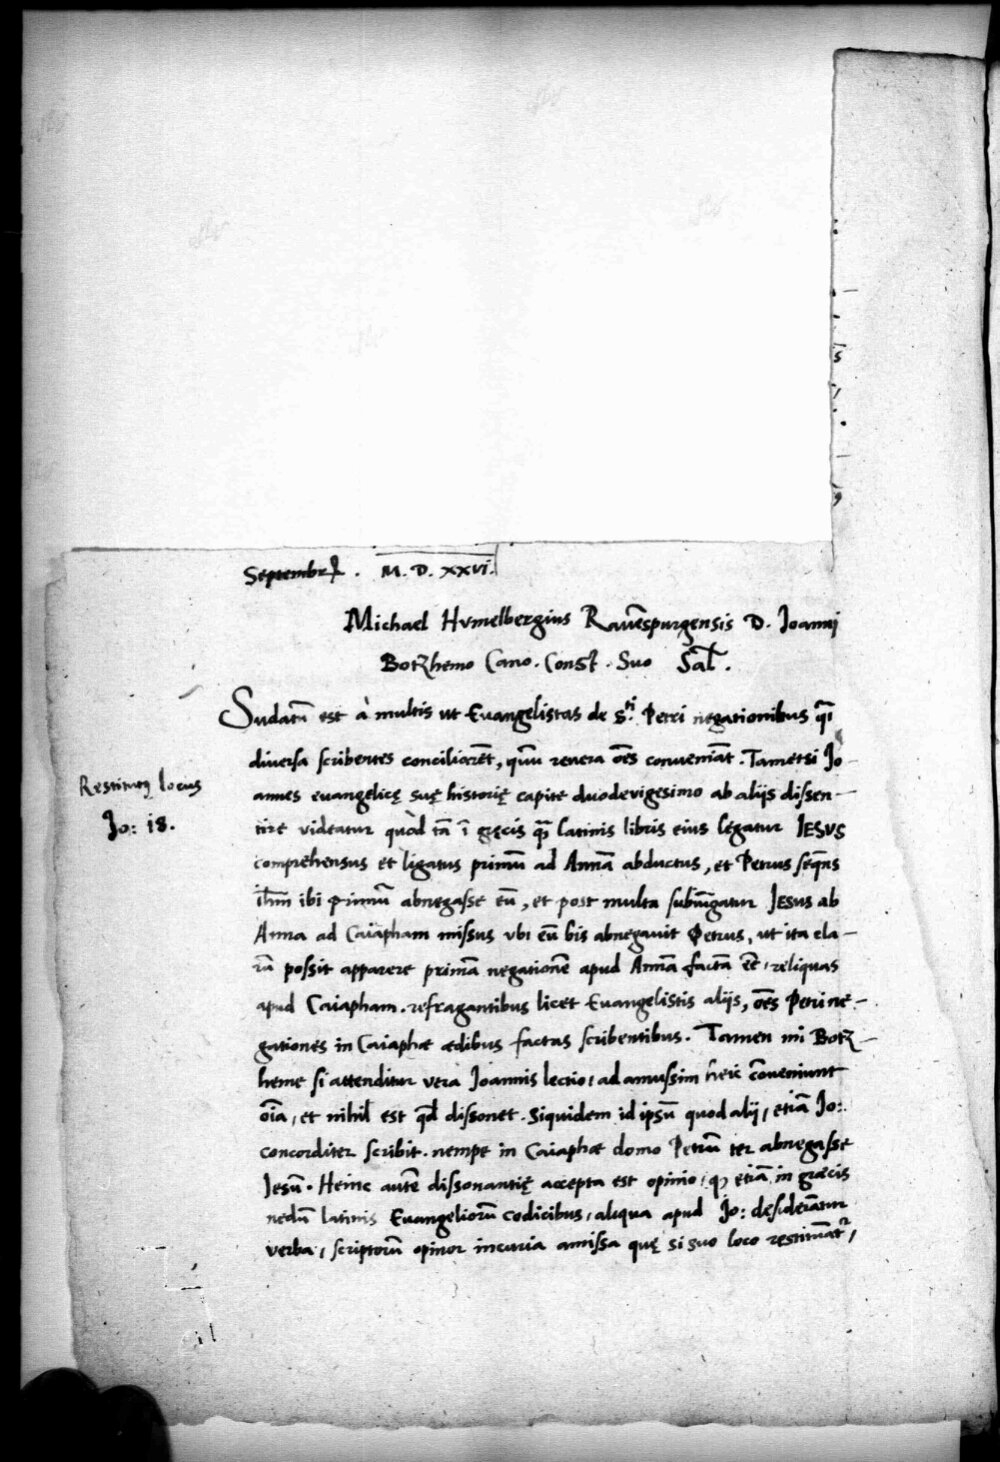 Septembr. M. D. XXVI.
Michael Hvmelbergius Rauēspurgensis D. Joanni
Botzhemo Cano. Const. Suo Sal̄.
Sudatū est à multis ut Euangelistas de S.ti Petri negationibus q̄
diuersa scribentes conciliarēt, quū reuera oēs conueniāt. Tametsi Jo-
annes euangelicę suę historię capite duodevigesimo ab alijs dissen-
tire videatur quòd tā ī gręcis q̄ latinis libris eius legatur JESVS
comprehensus et ligatus primū ad Annā abductus, et Petrus seq̄ns
ih̄m ibi primū abnegasse eū, et post multa subiūgatur JESUS ab
Anna ad Caiapham missus vbi eū bis abnegauit Petrus, ut ita cla-
rū possit apparere primā negationē apud Annā factā eē, reliquas
apud Caiapham. refragantibus licet Euangelistis alijs, oēs Petri ne-
gationes in Caiaphæ ædibus factas scribentibus. Tamen mi Botz-
heme si attenditur vera Joannis lectio, ad amussim heic cōueniunt
oīa, et nihil est qd̄ dissonet. Siquidem id ipsū quod alij, etiā Jo:
concorditer scribit. nempe in Caiaphæ domo Petrū ter abnegasse
Jesū. Heinc autē dissonantię accepta est opinio, q etiā in græcis
nedū latinis Euangeliorū codicibus, aliqua apud Jo: dęsiderātur
verba, scriptorū opinor incuria amissa quę si suo loco restituāt,
Restitutꝯ locus
Jo: 18.